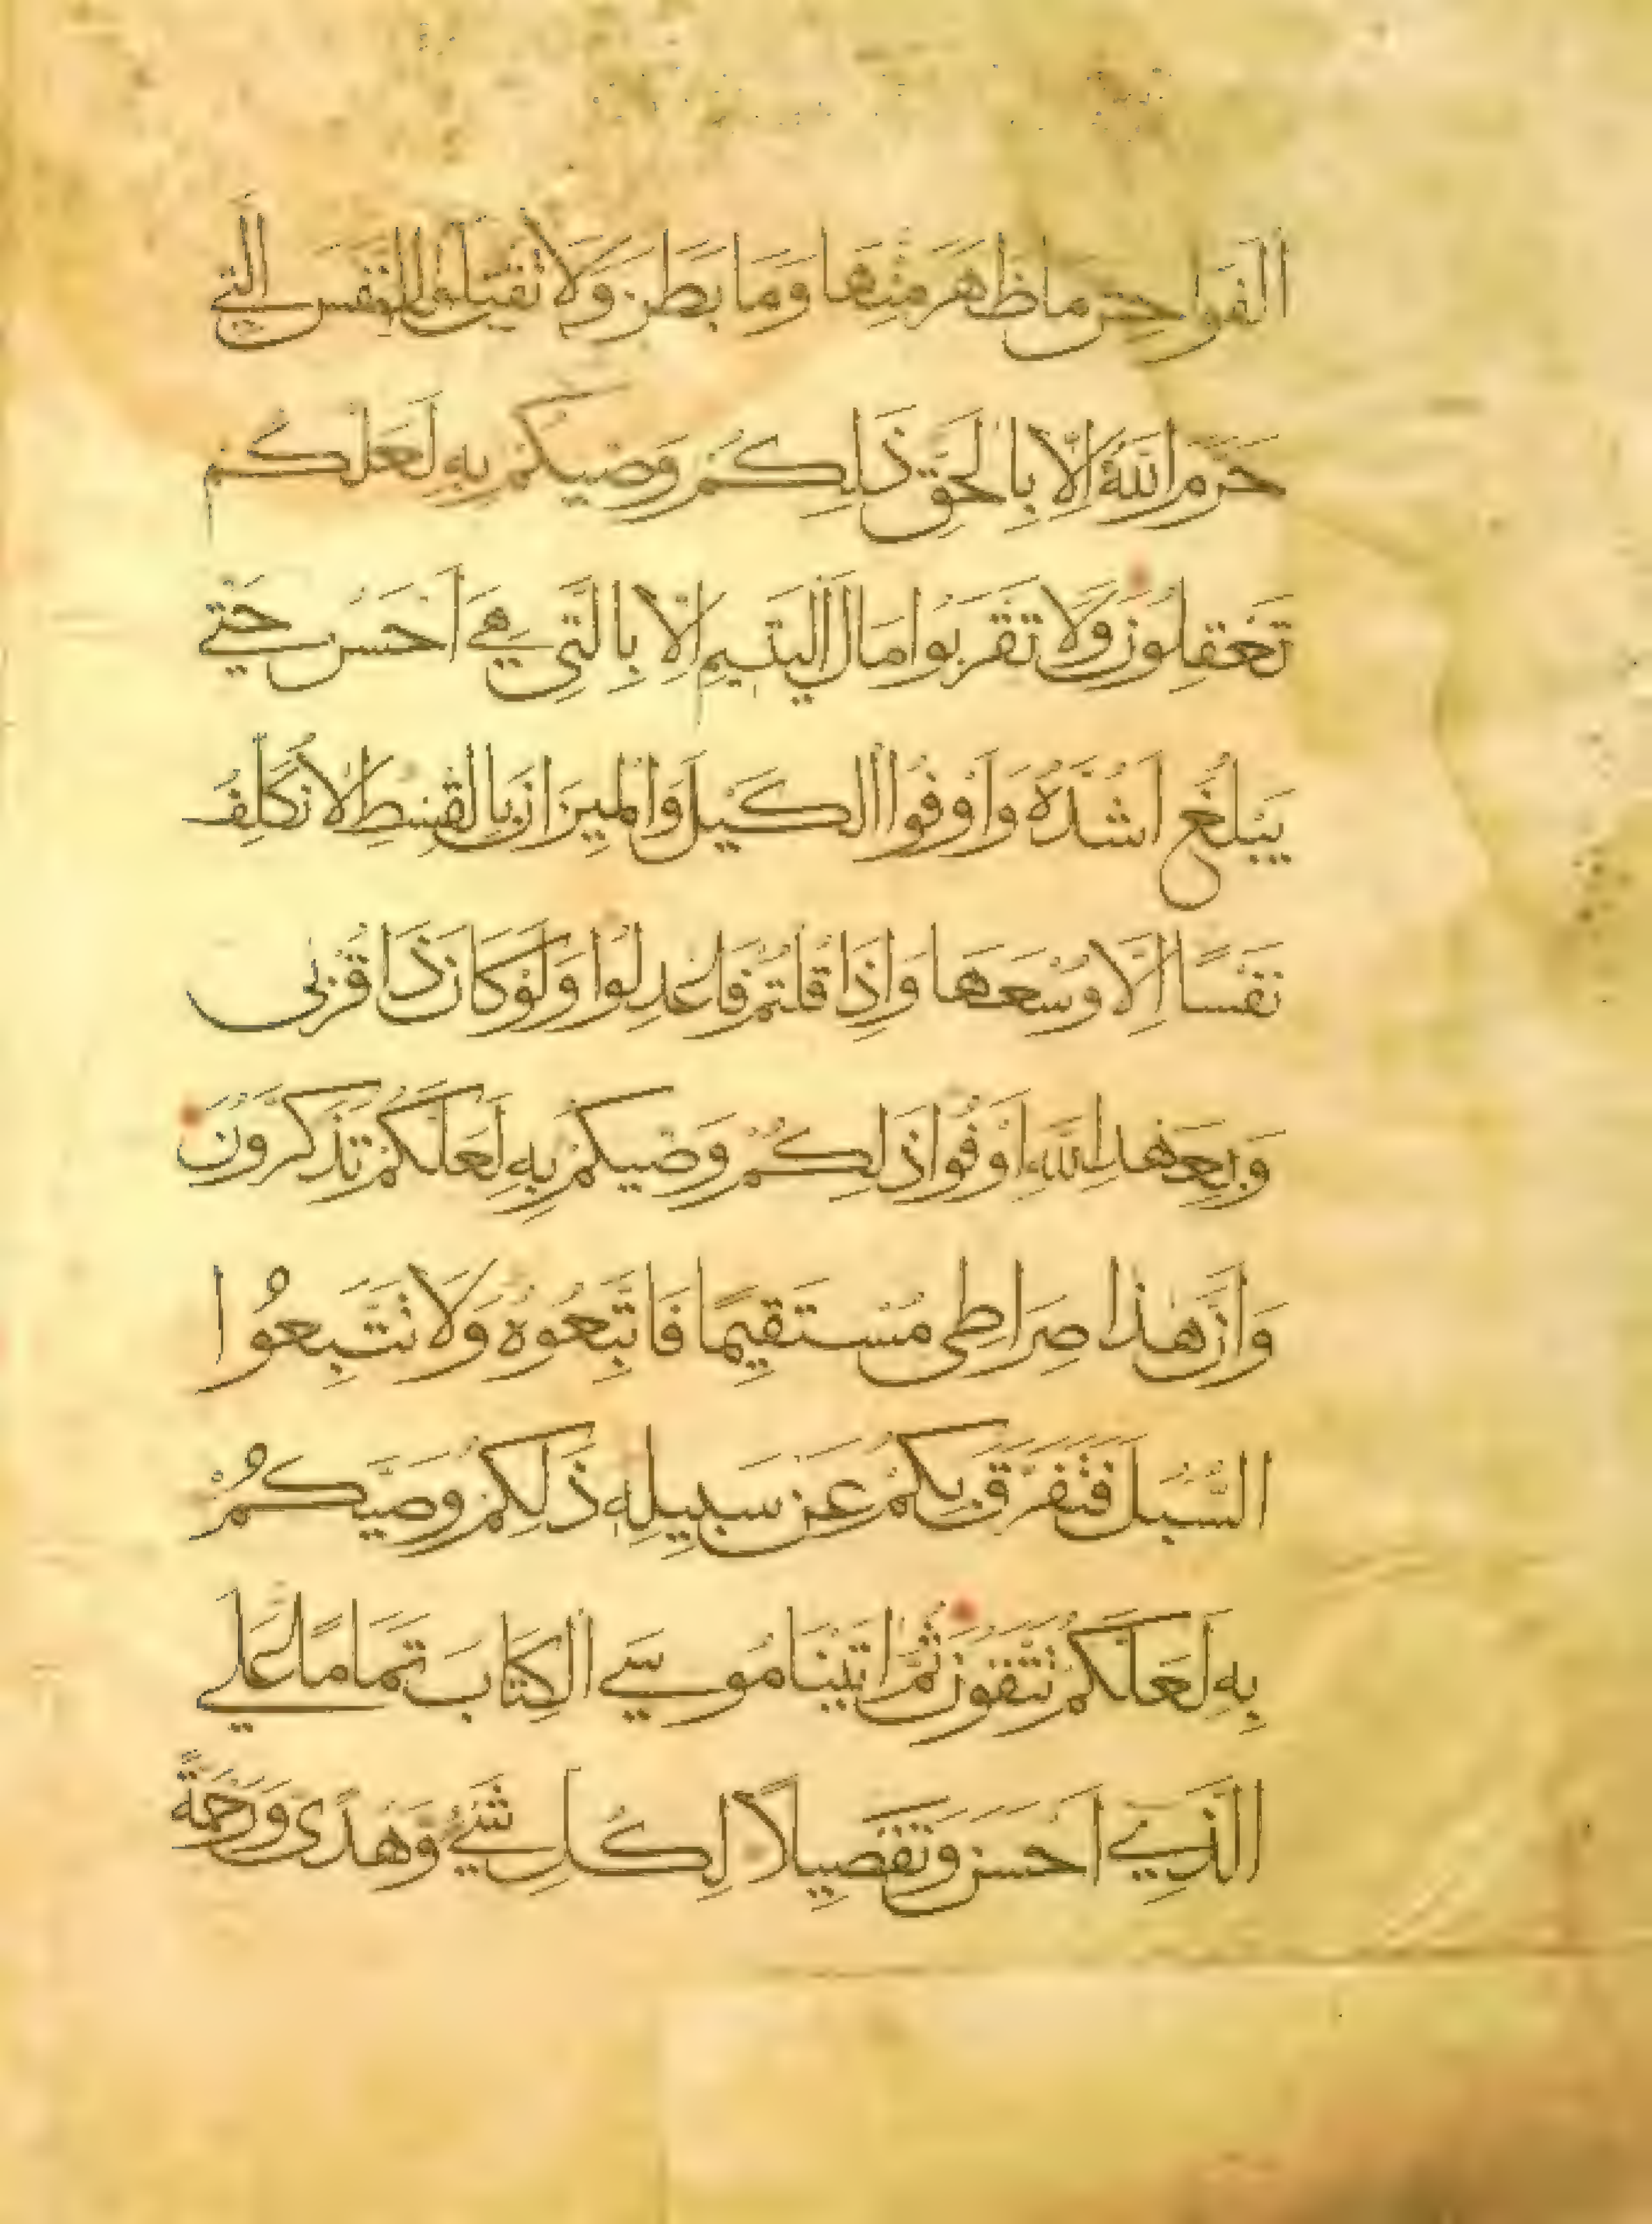 الفواحش ما ظهر منها وما بطن ولا تقتلوا النفس التي
حرم الله الا بالحق ذالكم وصيكم به لعلكم
تعقلون ولا تقربوا مال اليتيم الا بالتي هي احسن حتي
يبلغ اشده واوفوا الكيل والميزان بالقسط لا نكلف
نفسا الا وسعها واذا قلتم فاعدلوا ولو كان ذا قربى
وبعهد الله اوفوا ذلكم وصيكم به لعلكم تذكرون
وان هذا صراطي مستقيما فاتبعوه ولا تتبعوا
السبل فتفرق بكم عن سبيله ذلكم وصيكم
به لعلكم تتقون ثم اتينا موسي الكتاب تماما علي
الذي احسن وتفصيلا لكل شيء وهدى ورحمة